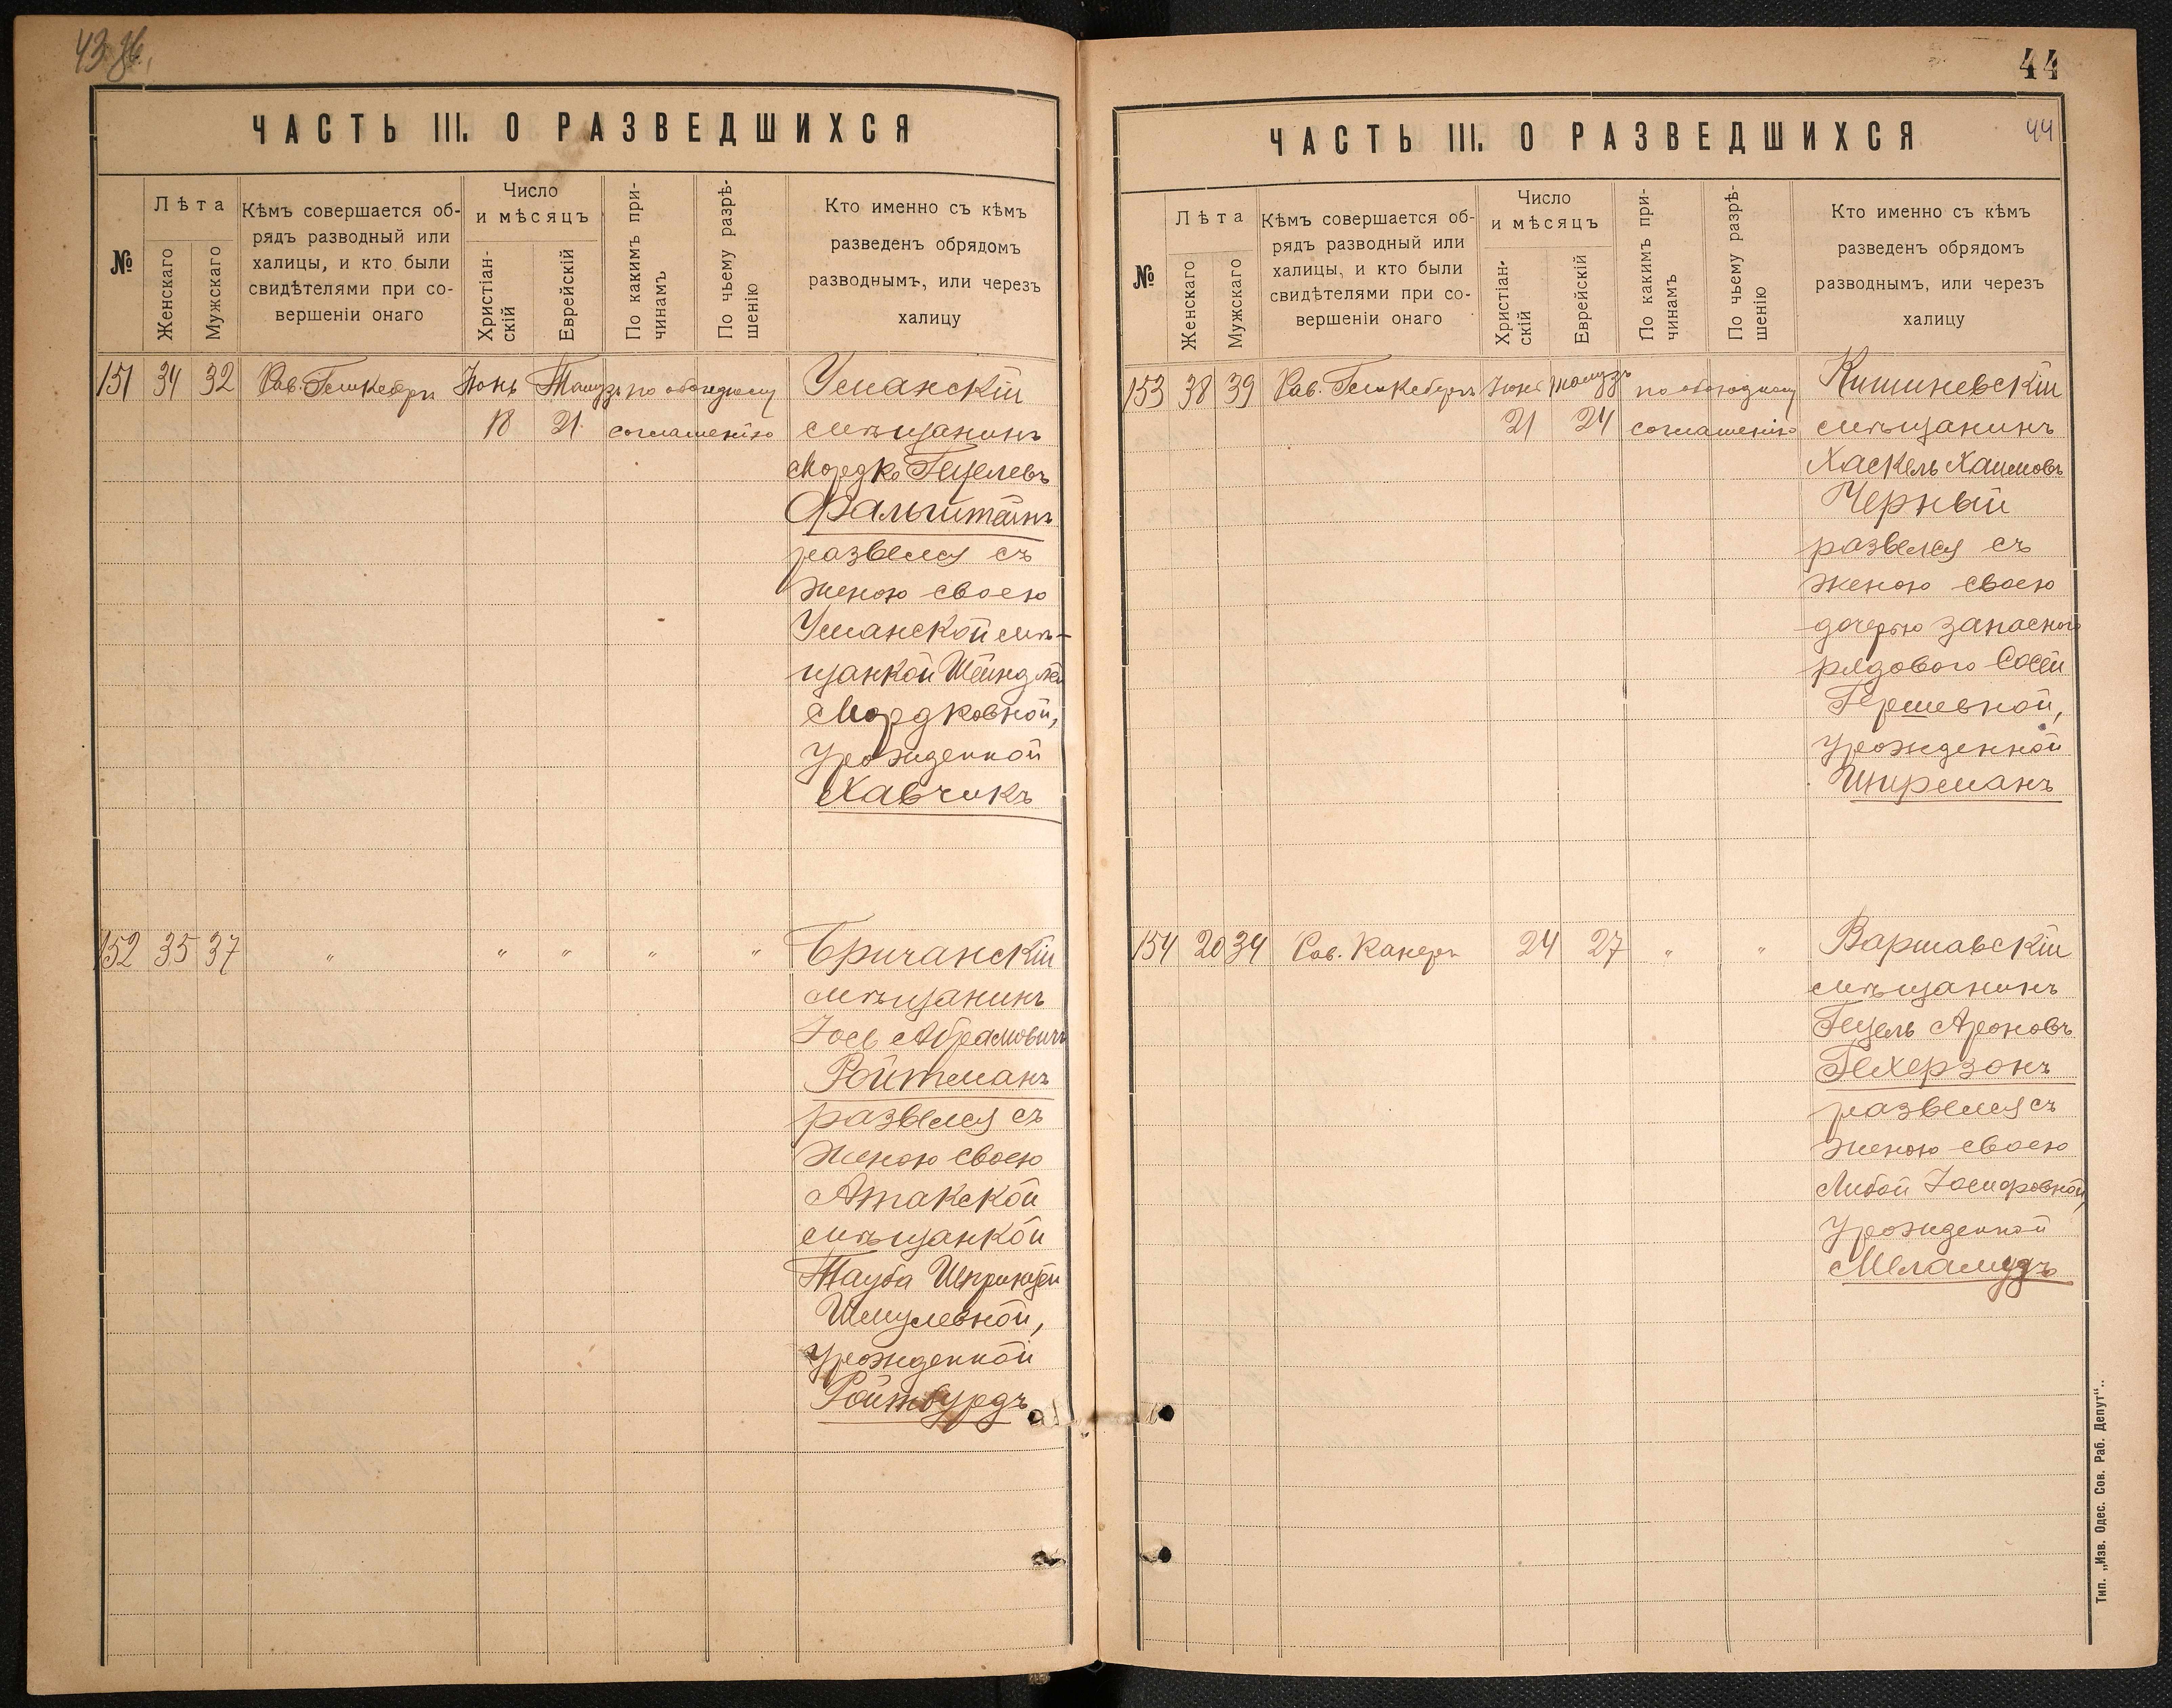 43 об.
ЧАСТЬ III. О РАЗВЕДШИХСЯ
№
Лѣта
Женскаго
Мужскаго
Кѣмъ совершается об-
рядъ разводный или
халицы, и кто были
свидѣтелями при со-
вершеніи онаго
Число
и мѣсяцъ
Христіан-
скій
Еврейскій
По какимъ при-
чинамъ
По чьему разрѣ-
шенію
Кто именно съ кѣмъ
разведенъ обрядомъ
разводнымъ, или черезъ
халицу
151 34 32 Рав. Юнь Тамузъ по обоюдному Уманскій
18 21 соглашенію мѣщанинъ
Мордко Гецелевъ
Фальштейнъ
развелся съ
женою своею
Уманской мѣ-
щанкой Шейндлей
Мордковной,
урожденной
Хавчикъ
152 35 37 " " " " " Бричанскій
мѣщанинъ
Іось Абрамовичъ
Ройтманъ
развелся съ
женою своею
Атакской
мѣщанкой
Тауба Шпринцей
Шмулевной,
урожденной
Ройтбурдъ
44
44
ЧАСТЬ III. О РАЗВЕДШИХСЯ
№
Лѣта
Женскаго
Мужскаго
Кѣмъ совершается об-
рядъ разводный или
халицы, и кто были
свидѣтелями при со-
вершеніи онаго
Число
и мѣсяцъ
Христіан-
скій
Еврейскій
По какимъ при-
чинамъ
По чьему разрѣ-
шенію
Кто именно съ кѣмъ
разведенъ обрядомъ
разводнымъ, или черезъ
халицу
153 38 39 Рав. Юнь Тамузъ по обоюдному Кишиневскій
21 24 соглашенію мѣщанинъ
Хаскель Хаимовъ
Черный
развелся съ
женою своею
дочерью запасного
рядового Сосей
Гершевной,
урожденной
Ширманъ
154 20 34 Рав. Канеръ 24 27 " " Варшавскій
мѣщанинъ
Гецель Ароновъ
Гехерзонъ
развелся съ
женою своею
Либой Іосифовной,
урожденной
Меламудъ
Тип. „Изв. Одес. Сов. Раб. Депут“..